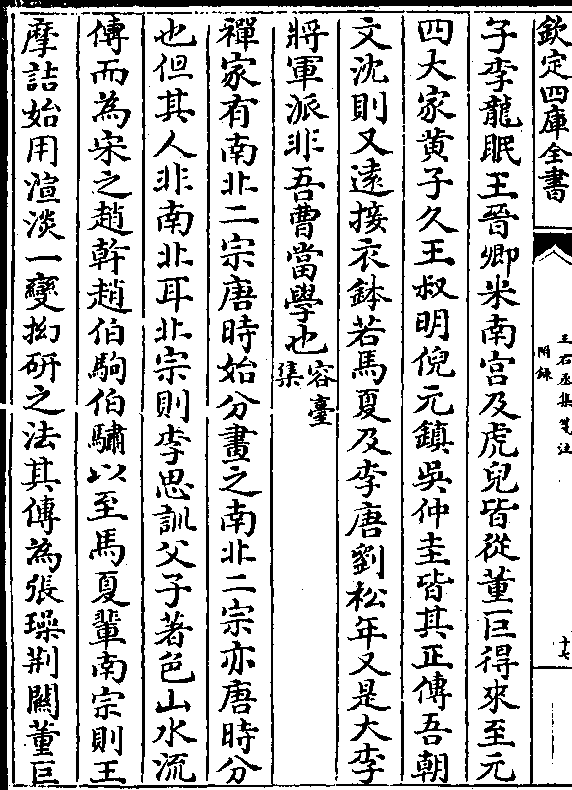 欽定四庫全書
王右丞集箋注
附錄
十七
子李龍眠王晉卿米南宫及虎兒皆從董巨得來至元
四大家黄子久王叔明倪元鎮吳仲圭皆其正傳吾朝
文沈則又遠接衣鉢若馬夏及李唐劉松年又是大李
將軍派非吾曹當學也容臺集
禪家有南北二宗唐時始分畫之南北二宗亦唐時分
也但其人非南北耳北宗則李思訓父子著色山水流
傳而為宋之趙幹趙伯駒伯驌以至馬夏輩南宗則王
摩詰始用渲淡一變拘研之法其傳為張璪荆關董巨